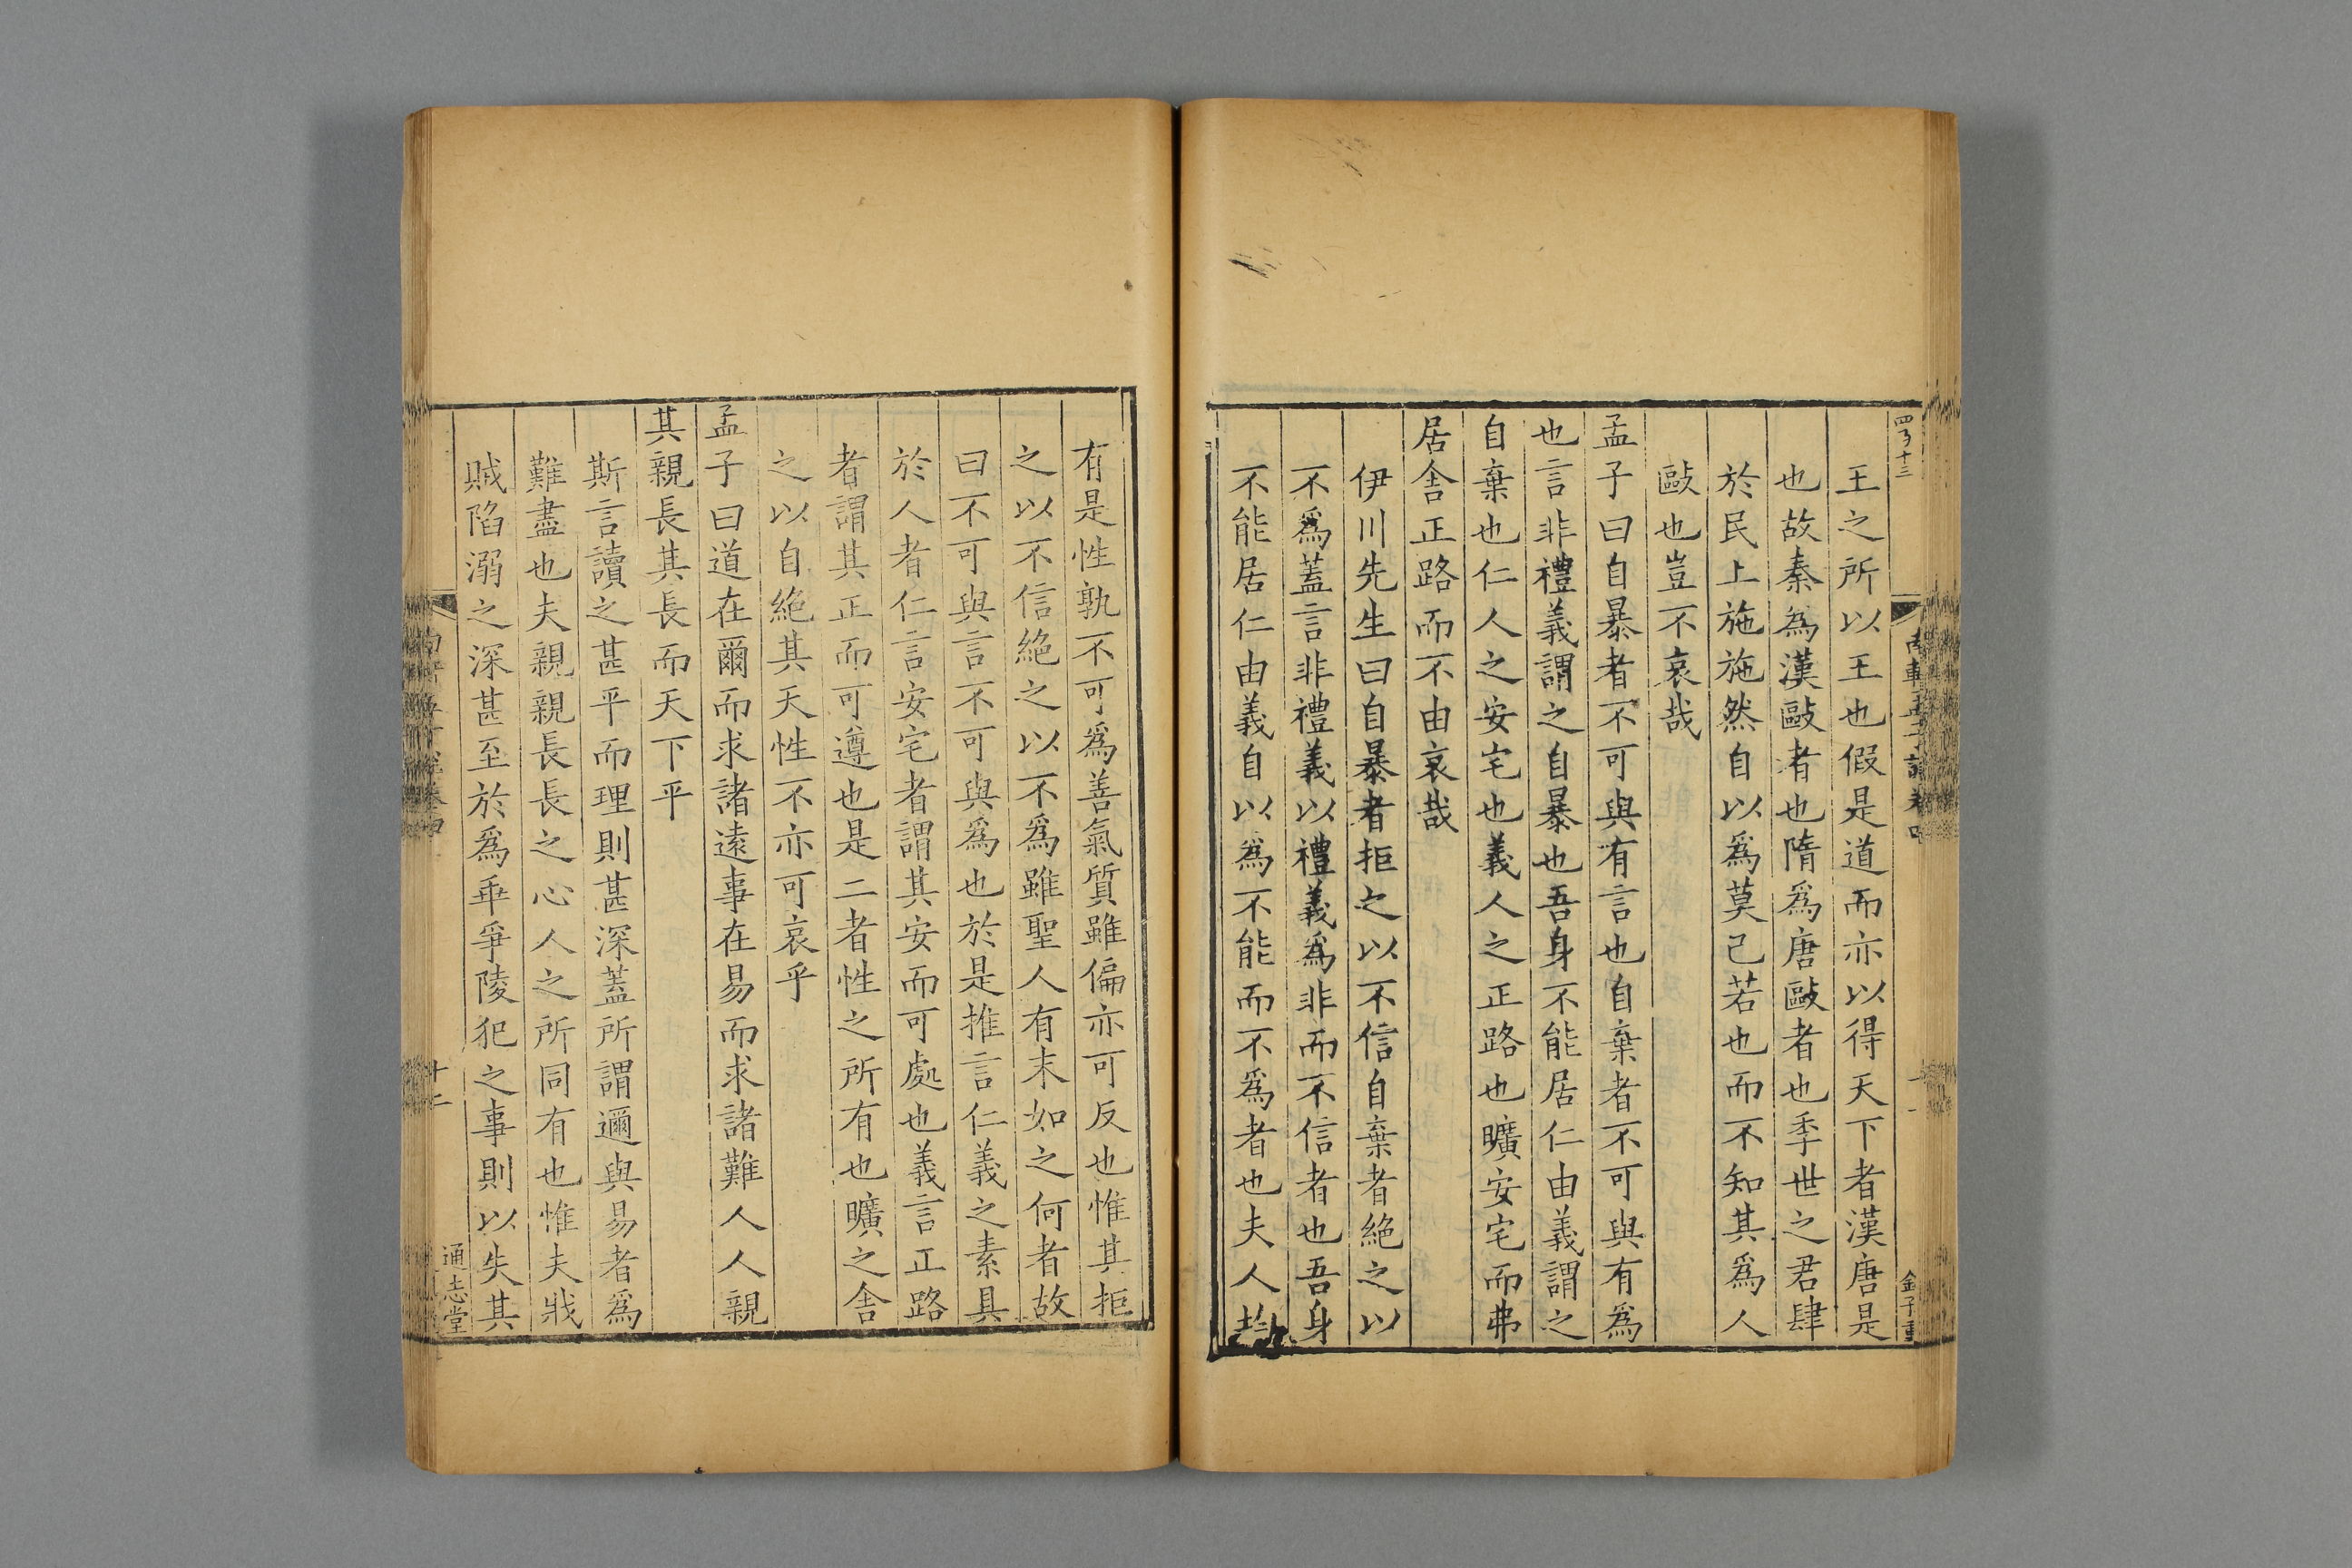 王之所以王也假是道而亦以得天下者漢唐是
也故秦為漢敺者也隋爲唐敺者也季世之君肆
於民上施施然自以爲莫己若也而不知其爲人
敺也豈不哀哉
孟子曰自暴者不可與有言也自棄者不可與有爲
也言非禮義謂之自暴也吾身不能居仁由義謂之
自棄也仁人之安宅也義人之正路也曠安宅而弗
居舍正路而不由哀哉
伊川先生曰自暴者拒之以不信自棄者絶之以
不爲蓋言非禮義以禮義爲非而不信者也吾身
不能居仁由義自以爲不能而不爲者也夫人均
有是性孰不可爲善氣質雖偏亦可反也惟其拒
之以不信絶之以不爲雖聖人有末如之何者故
曰不可與言不可與爲也於是推言仁義之素具
於人者仁言安宅者謂其安而可處也義言正路
者謂其正而可遵也是二者性之所有也曠之舍
之以自絶其天性不亦可哀乎
孟子曰道在爾而求諸遠事在易而求諸難人人親
其親長其長而天下平
斯言讀之甚平而理則甚深蓋所謂邇與易者為
難盡也夫親親長長之心人之所同有也惟夫戕
賊陷溺之深甚至於爲乖爭陵犯之事則以失其
十二
通志堂